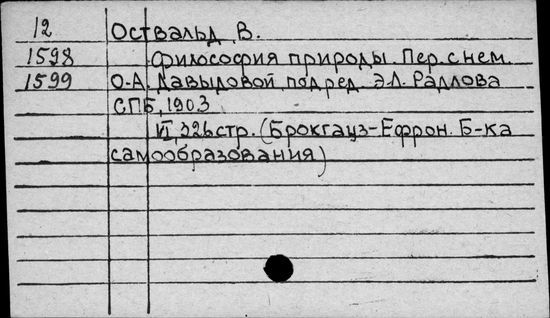 12 Оствальд В.
1598 Философия природы. Пер. с нем.
1599 О.А. Давыдовой под ред. Э.Л. Радлова
СПБ, 1903
VI, 326 стр. (Брокгауз-Ефрон. Б-ка
самообразования)